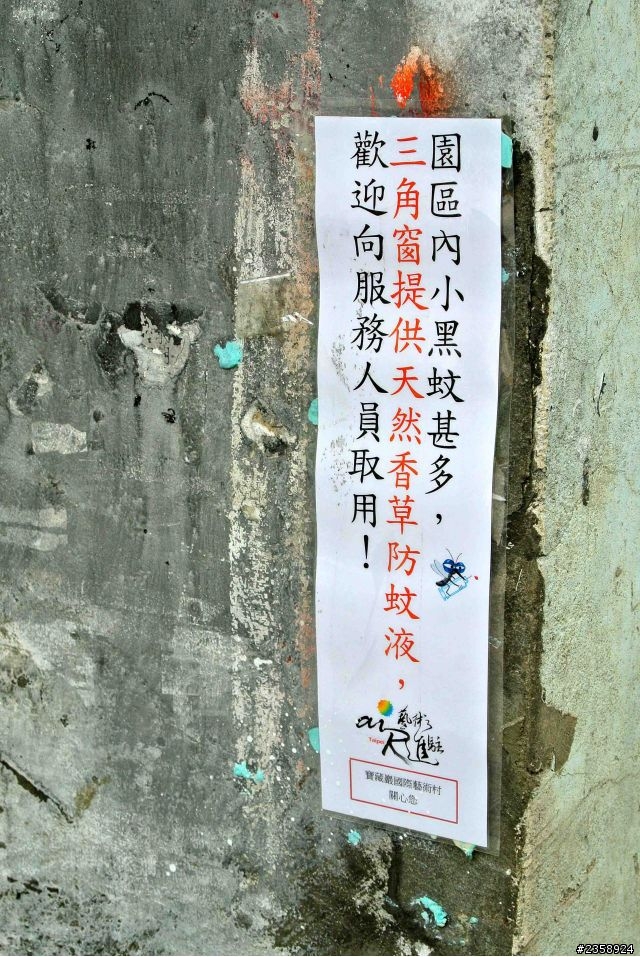 園區內小黑蚊甚多，
三角窗提供天然香草防蚊液，
歡迎向服務人員取用！
藝術進駐
aiR
Taipei
寶藏巖國際藝術村
關心您
#2358924